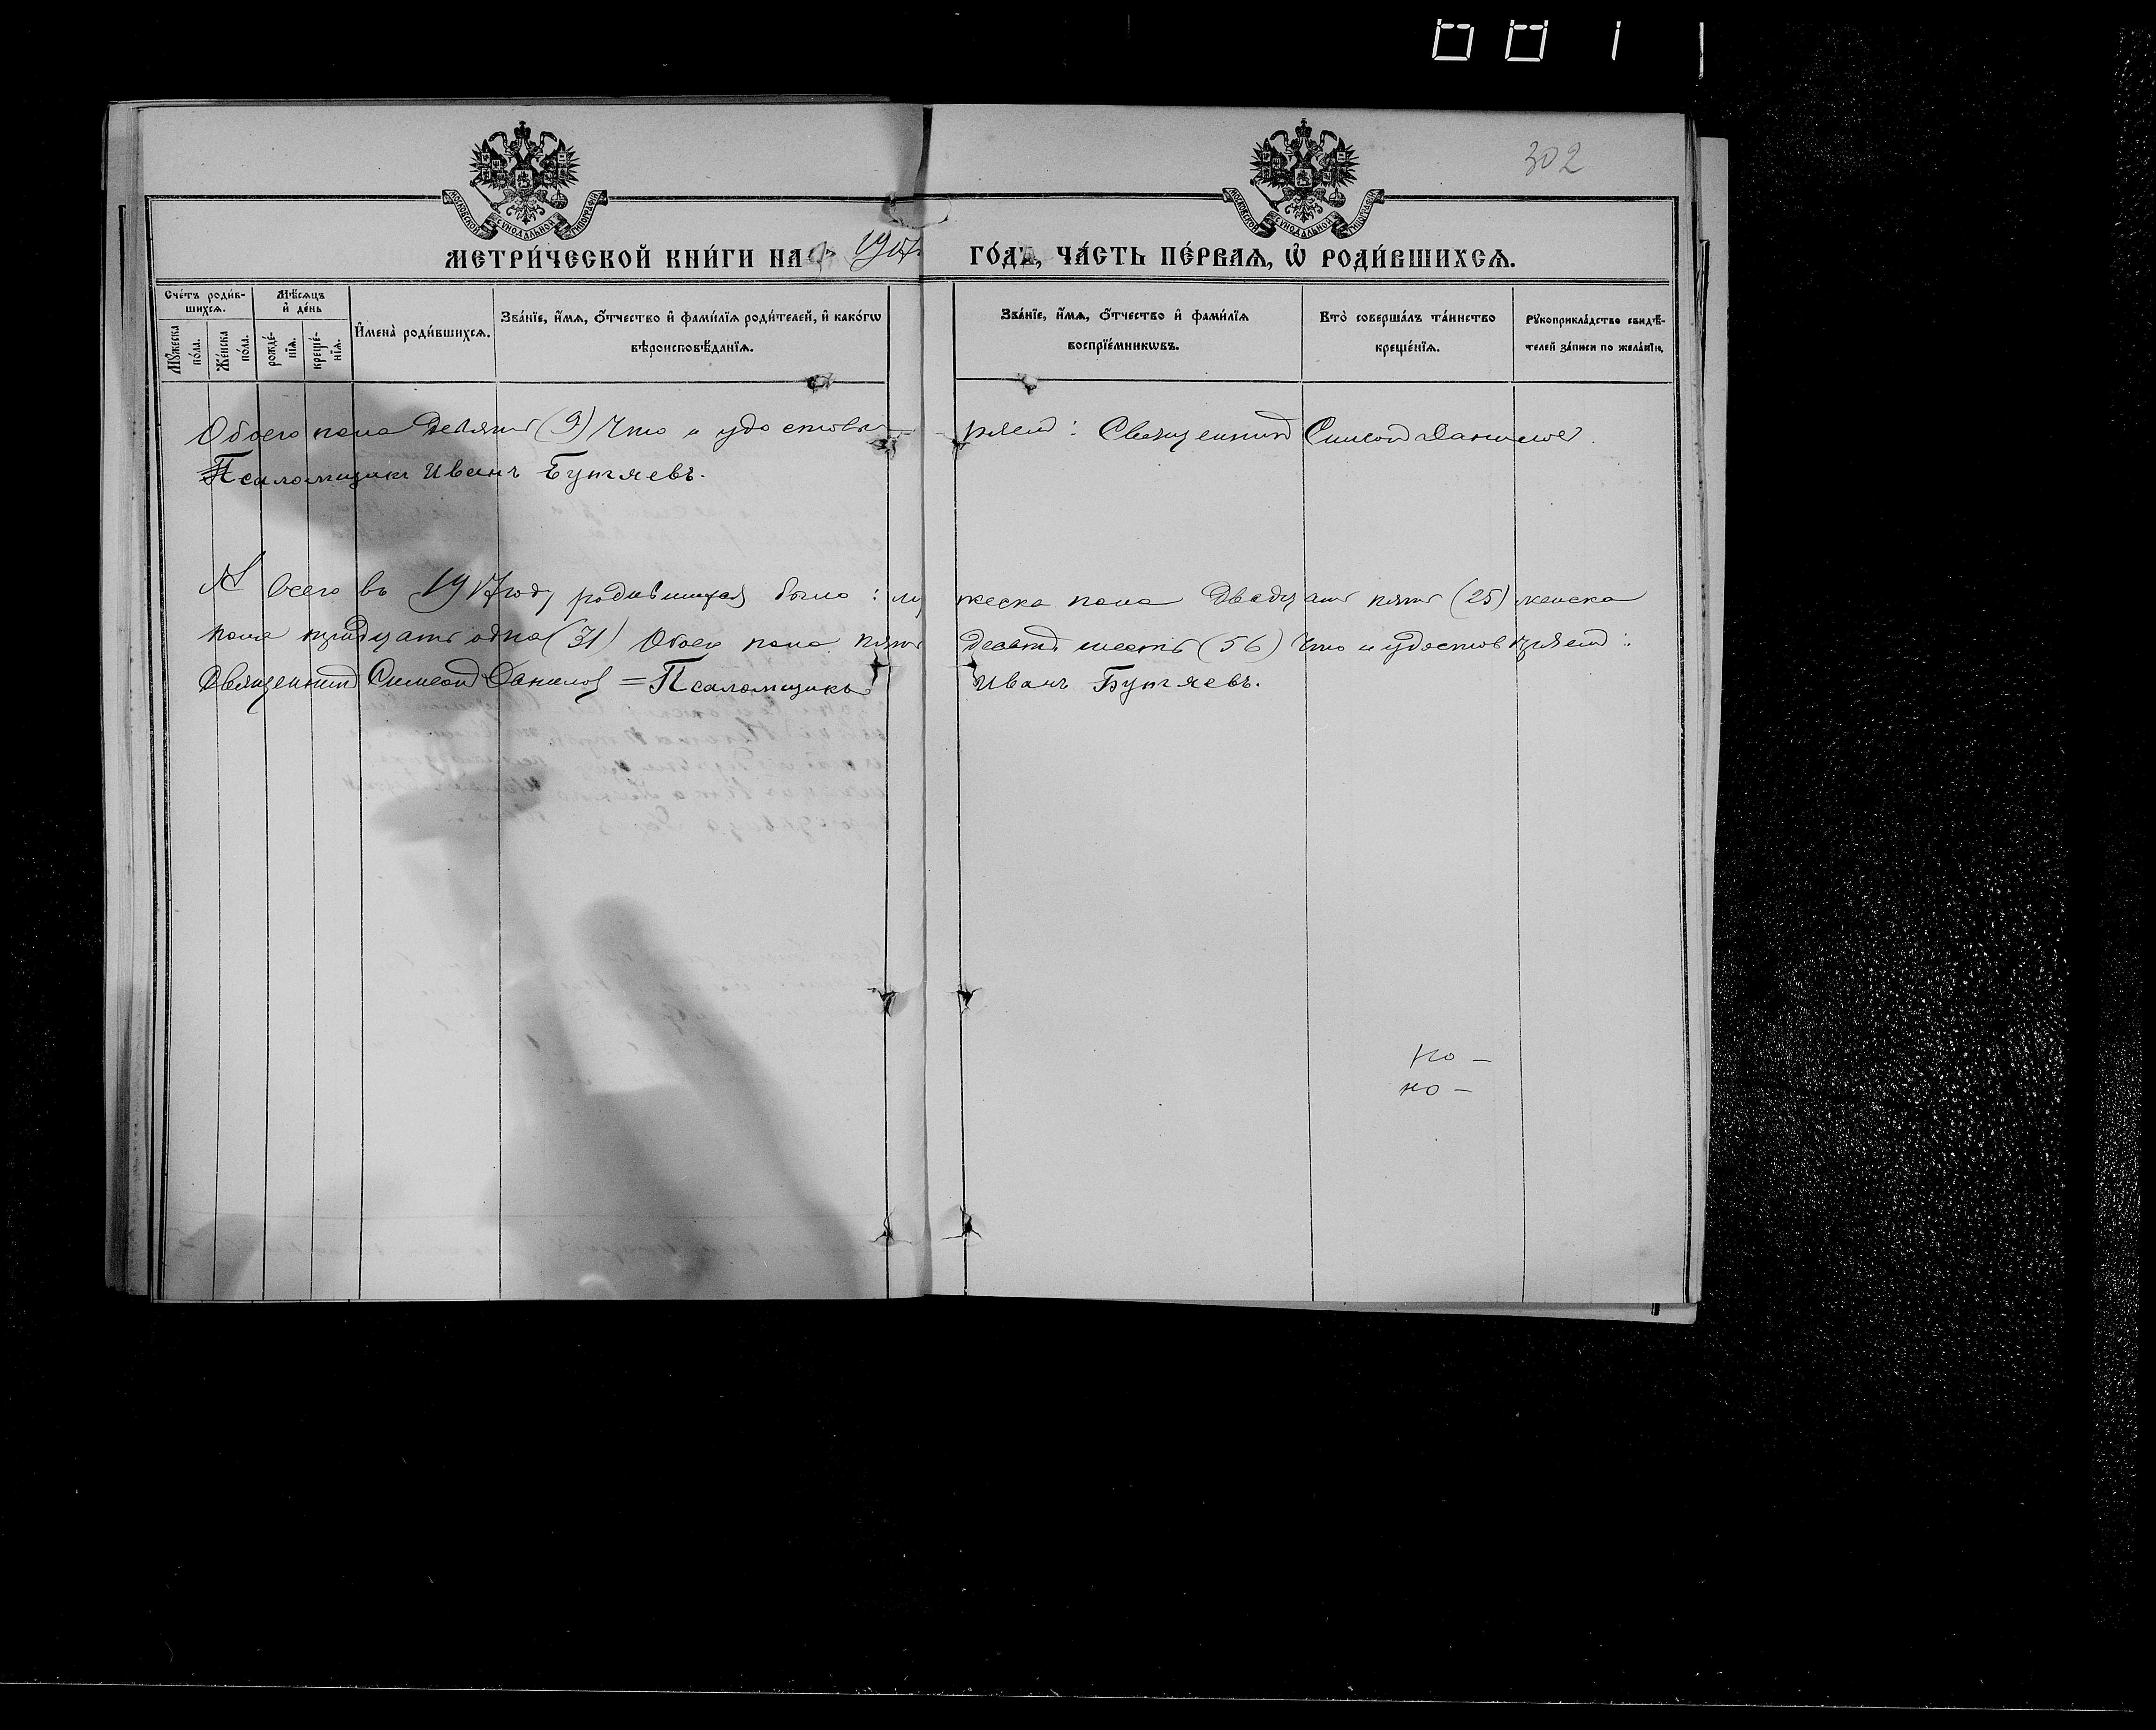 302
МОСКОВСКОЙ СУНОДАЛЬНОЙ ТИПОГРАФІИ
МОСКОВСКОЙ СУНОДАЛЬНОЙ ТИПОГРАФІИ
МЕТРИ́ЧЕСКОЙ КНИ́ГИ НА 1917 ГО́ДЪ, ЧА́СТЬ ПЕ́РВАѦ, Ѡ҆ РОДИ́ВШИХСѦ.
Сче́тъ роди́в-
шихсѧ.
Мꙋ́жеска по́ла.
Же́нска по́ла.
Мѣ́сѧцъ
и҆ де́нь
рожде́-нїѧ.
креще́-нїѧ.
И҆мена̀ роди́вшихсѧ.
Зва́нїе, и҆́мѧ, ѻ҆́тчество и҆ фами́лїѧ роди́телей, и҆ како́гѡ
вѣроисповѣ́данїѧ.
Зва́нїе, и҆́мѧ, ѻ҆́тчество и҆ фами́лїѧ
воспрїе́мникѡвъ.
Кто̀ соверша́лъ та́инство
креще́нїѧ.
Рꙋкоприкла́дство свидѣ́-
телей за́писи по жела́нїю.
Обоего пола девять (9) Что и удостовѣряемъ: Священникъ Симеонъ Даниловъ.
Псаломщикъ Иванъ Бутяевъ.
А всего въ 1917 году родившихся было: мужеска пола двадцать пять (25) женска
пола тридцать одна (31) Обоего пола пятьдесятъ шесть (56) Что и удостовѣряемъ:
Священникъ Симеонъ Даниловъ = Псаломщикъ Иванъ Бутяевъ.
но —
но —